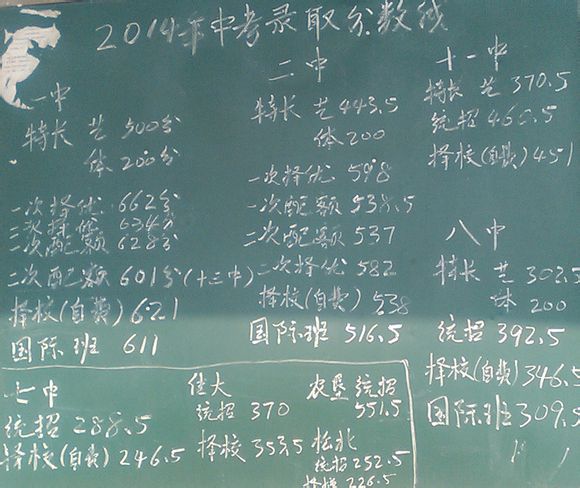 2014年中考录取分数线
一中
特长 艺 500分
体 200分
一次择优 662分
二次择优 634分
二次配额 628分
二次配额 601分(十三中)
择校(自费) 621
国际班 611
二中
特长 艺 443.5
体 200
一次择优 598
一次配额 538.5
二次配额 537
二次择优 582
择校(自费) 538
国际班 516.5
十一中
特长 艺 370.5
统招 460.5
择校(自费) 451
八中
特长 艺 302.5
体 200
统招 392.5
择校(自费) 346.5
国际班 309.5
七中
统招 288.5
择校(自费) 246.5
佳大
统招 370
择校 353.5
农垦 统招
551.5
松北
统招 252.5
择校 226.5